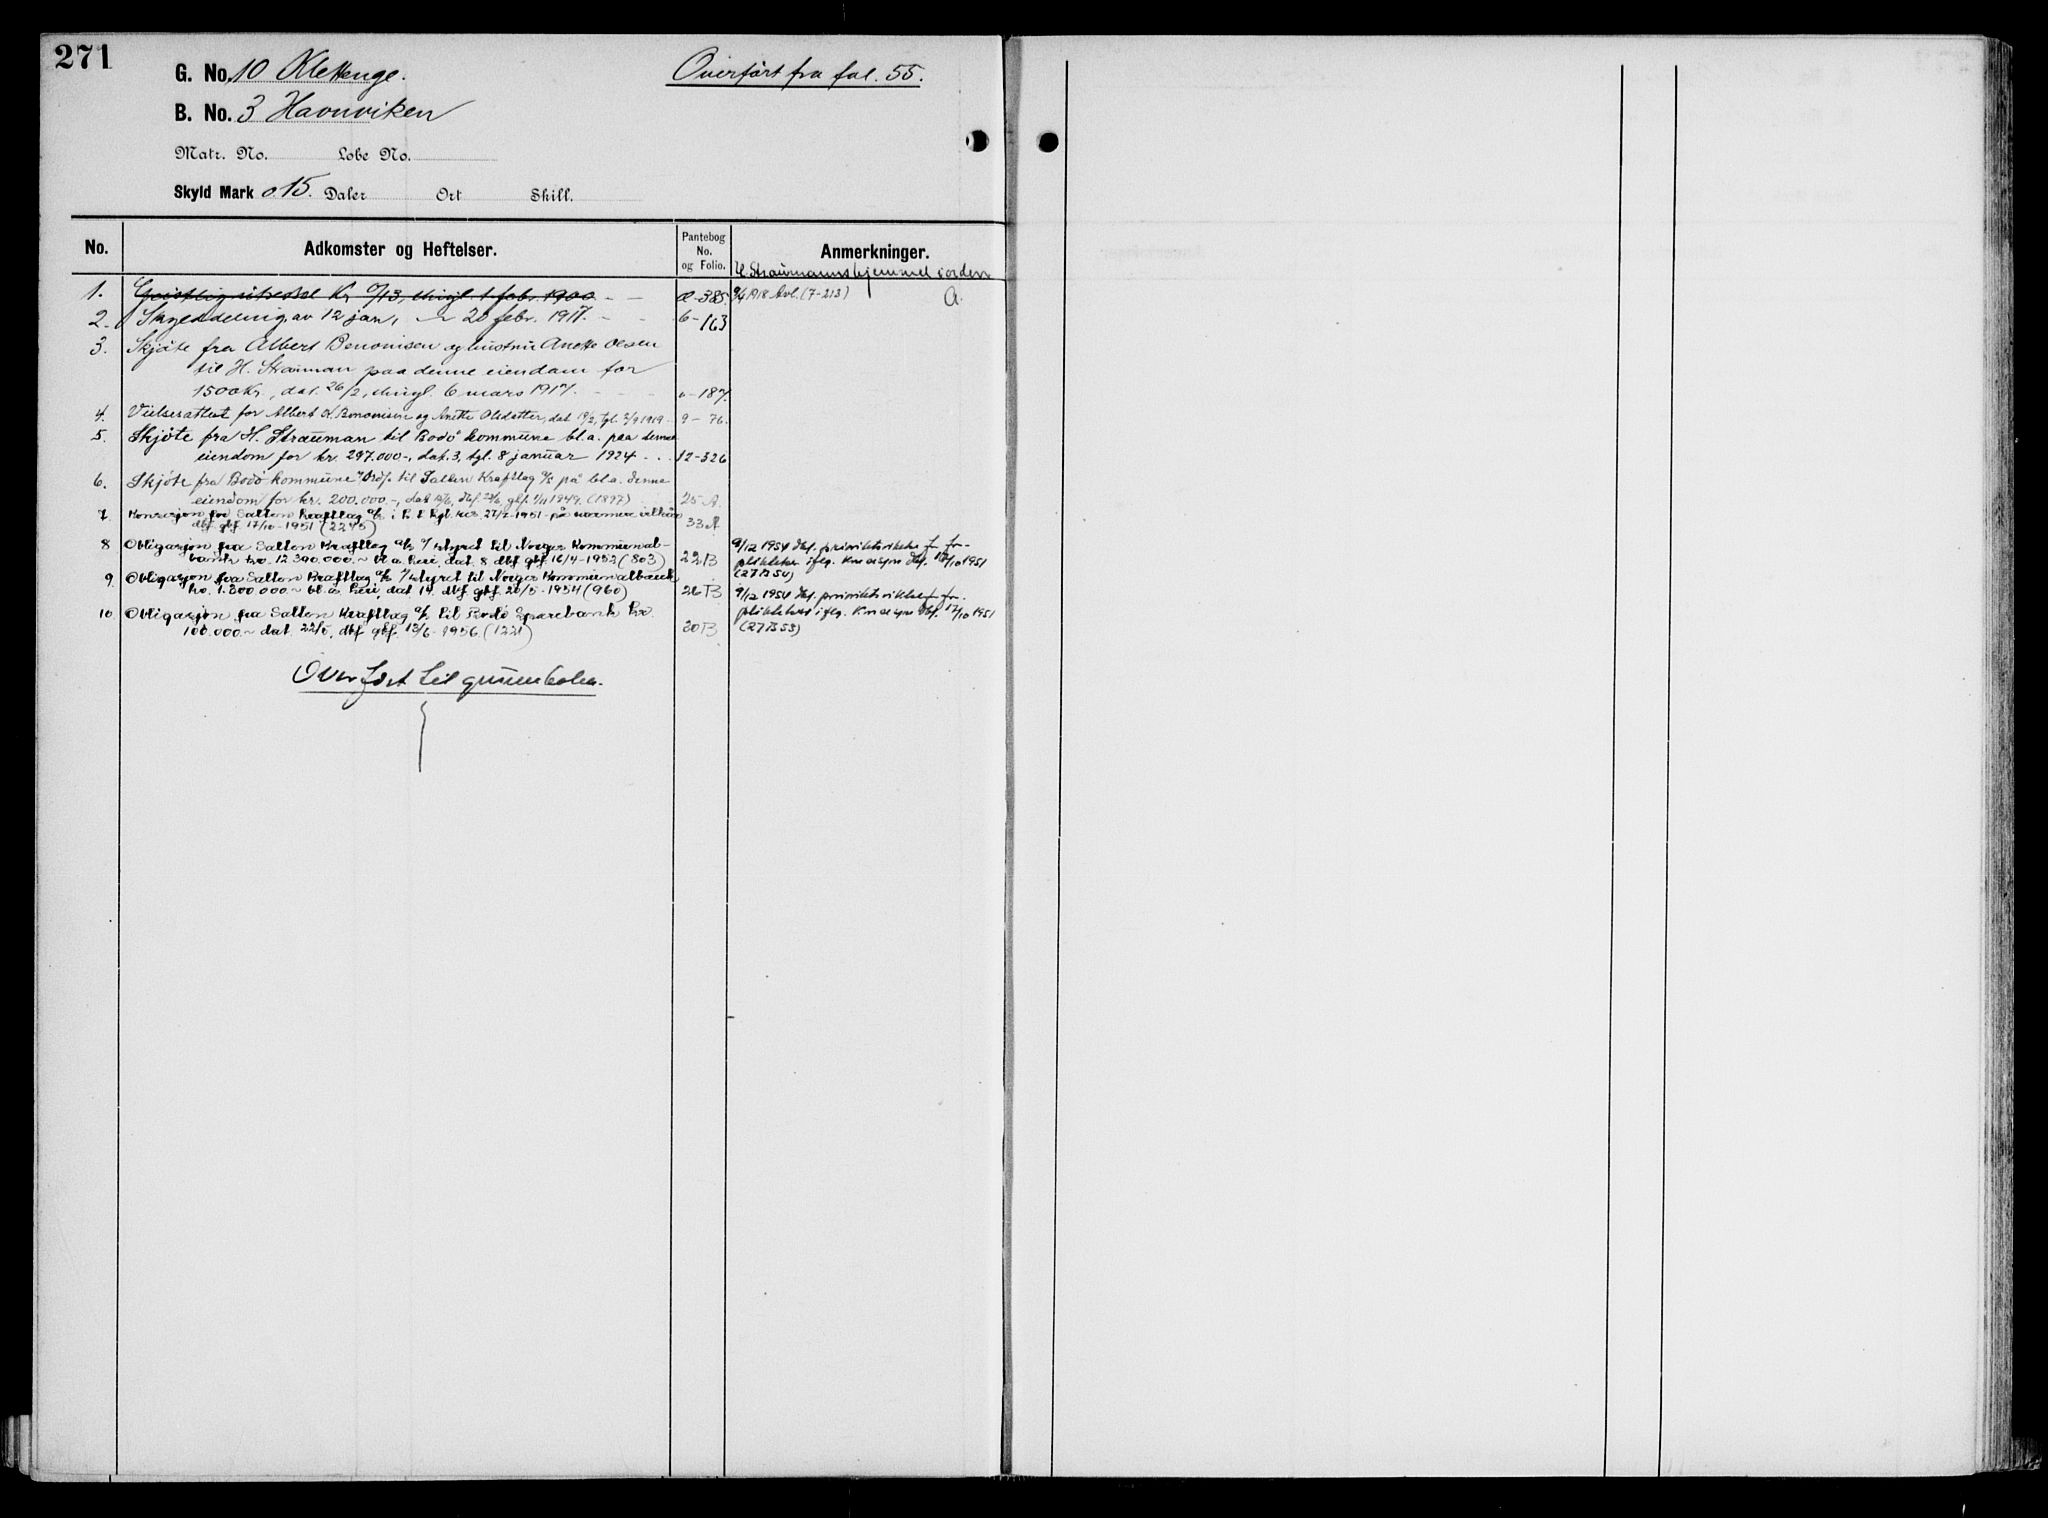 271
G. No. 10 Klettenge. Overført fra fol. 55.
B. No. 3 Havnviken
Matr. No. Løbe No.
Skyld Mark 0.15. Daler Ort Skill.
No. Adkomster og Heftelser. Pantebog No. og Folio. Anmerkninger.
H. Straumanns hjemmel i orden
1. Geistlig utsedel Kr 0/13, thingl. 1 febr. 1900 - - a-385. 9/4 1918 Avl. (7-213) A.
2. Skylddeling av 12 jan, 20 febr. 1917. - - 6-163
3. Skjøte fra Albert Benonisen og hustru Anette Olsen
til H. Strauman paa denne eiendom for
1500 Kr., dat. 26/2, thingl. 6 mars 1917. - - - „-187.
4. Vielsesattest for Albert K. Benonisen og Anette Olsdatter, dat 19/2, tgl. 2/9 1919 - 9-76.
5. Skjøte fra H. Strauman til Bodø kommune bl.a. paa denne
eiendom for kr. 297.000-, dat. 3, tgl. 8 januar 1924 - . . 12-326
6. Skjøte fra Bodø kommune v/ordf. til Salten Kraftlag A/S på bl.a. denne
eiendom for kr. 200.000.-, dat /6, dbf. /6, gbf. 1/11 1949. (1897) 25 A.
7. Konsesjon for Salten Kraftlag A/S i h. t. kgl. res. 27/7-1951 på nærmere vilkår
dbf. gbf. 17/10-1951 (2245) 33 A
8 Obligasjon fra Salten Kraftlag A/S v/styret til Norges Kommunal-
bank kr. 12.390.000.~ bl.a. heri, dat. 8 dbf gbf. 16/4-1952 (803) 22 B 9/12 1954 dbf. prioritetsvikelse f. for-
pliktelser iflg. konsesjon dbf. 17/10 1951
(27 B 54)
9. Obligasjon fra Salten Kraftlag A/S v/styret til Norges Kommunalbank
kr. 1.800.000.~ bl.a. heri, dat 14. dbf gbf. 20/5-1954 (960) 26 B 9/12 1954 dbf. prioritetsvikelse f. for-
pliktelser iflg. konsesjon dbf. 17/10 1951
(27 B 53)
10. Obligasjon fra Salten Kraftlag A/S til Bodø Sparebank kr.
100.000.~ dat. 22/5, dbf gbf. 13/6-1956 (1221) 30 B
Overført til grunnboken.